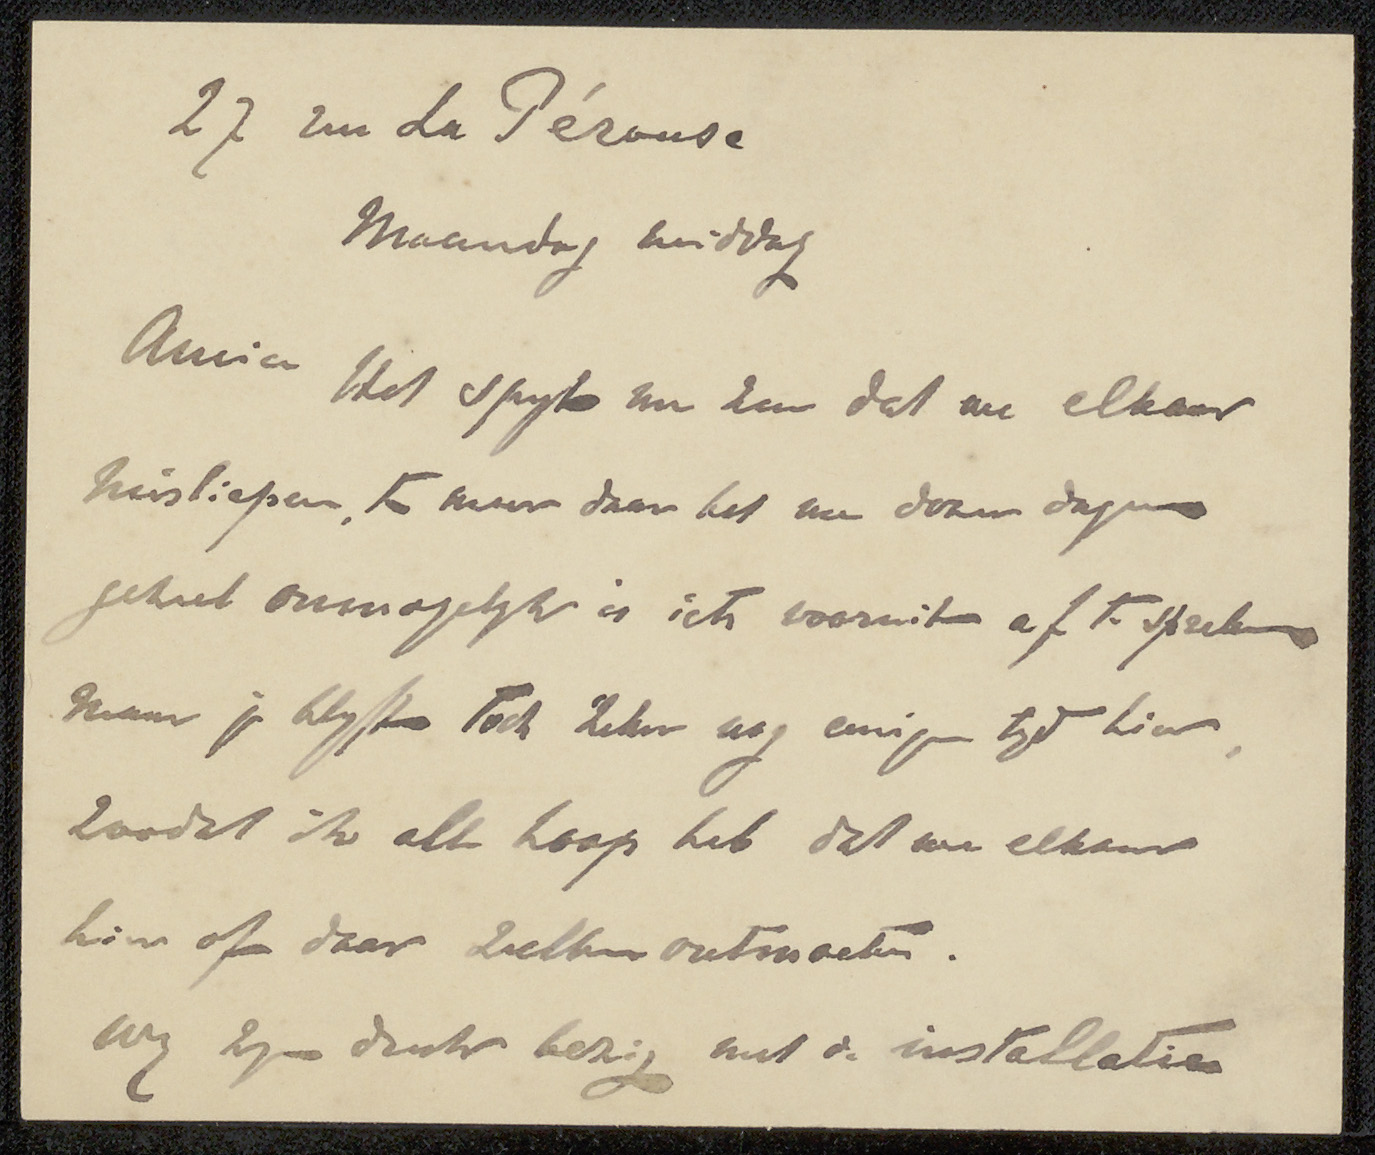 27 rue La Pérouse
Maandag middag
Amice Het spijt me zeer dat we elkaar
misliepen, te meer daar het me dezer dagen
geheel onmogelijk is iets vooruit af te spreken
maar je blijft toch zeker nog eenigen tijd hier,
zoodat ik alle hoop heb dat we elkaar
hier of daar zullen ontmoeten.
Wij zijn druk bezig met de installatie